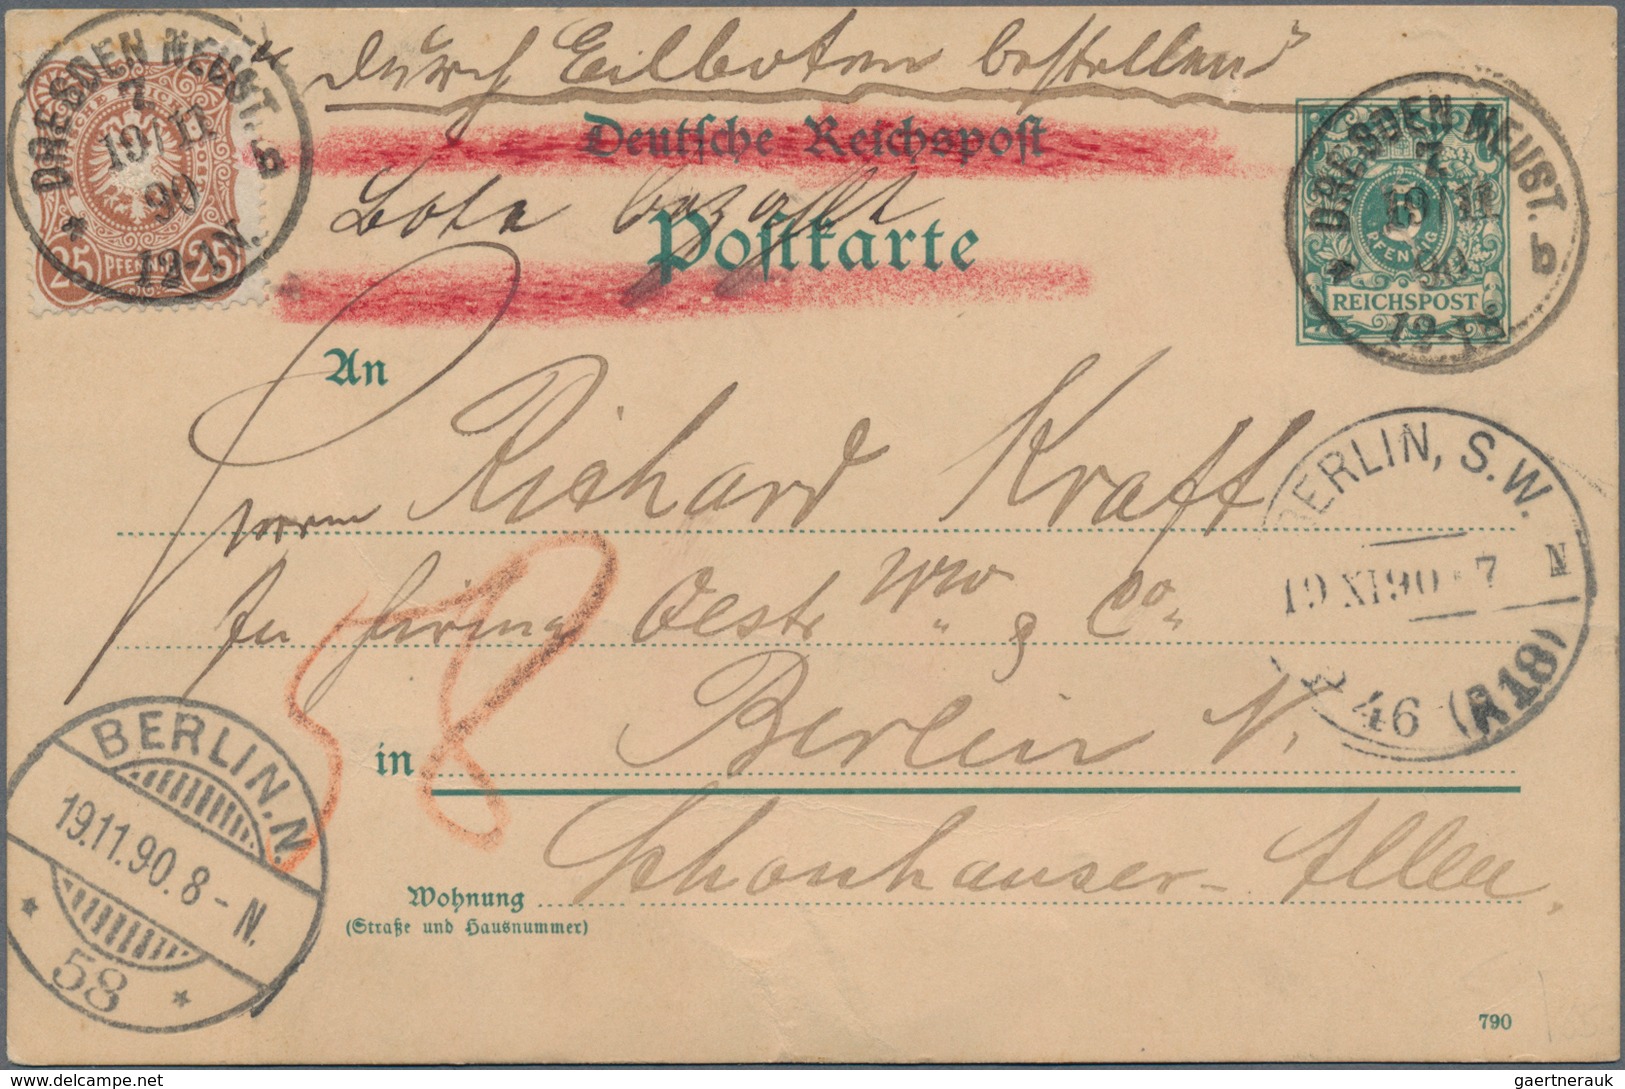 „Durch Eilboten bestellen"
Deutsche Reichspost
Bote bezahlt
Postkarte
DRESDEN NEUST. b
7.
19 11
90
12-1N.
*
25 PFENNIG 25
DRESDEN NEUST. b
7.
19 11
90
12-1N.
*
5
PFENNIG
REICHSPOST
An
Herrn Richard Kraft
in Firma Oestr & Co
58
in Berlin N.
Schönhauser-Allee
Wohnung
(Straße und Hausnummer)
BERLIN, S.W.
19 XI 90 * 7 N
P 46 (R18)
BERLIN.N.
19.11.90.8-N.
* 58 *
790
gaertnerauk